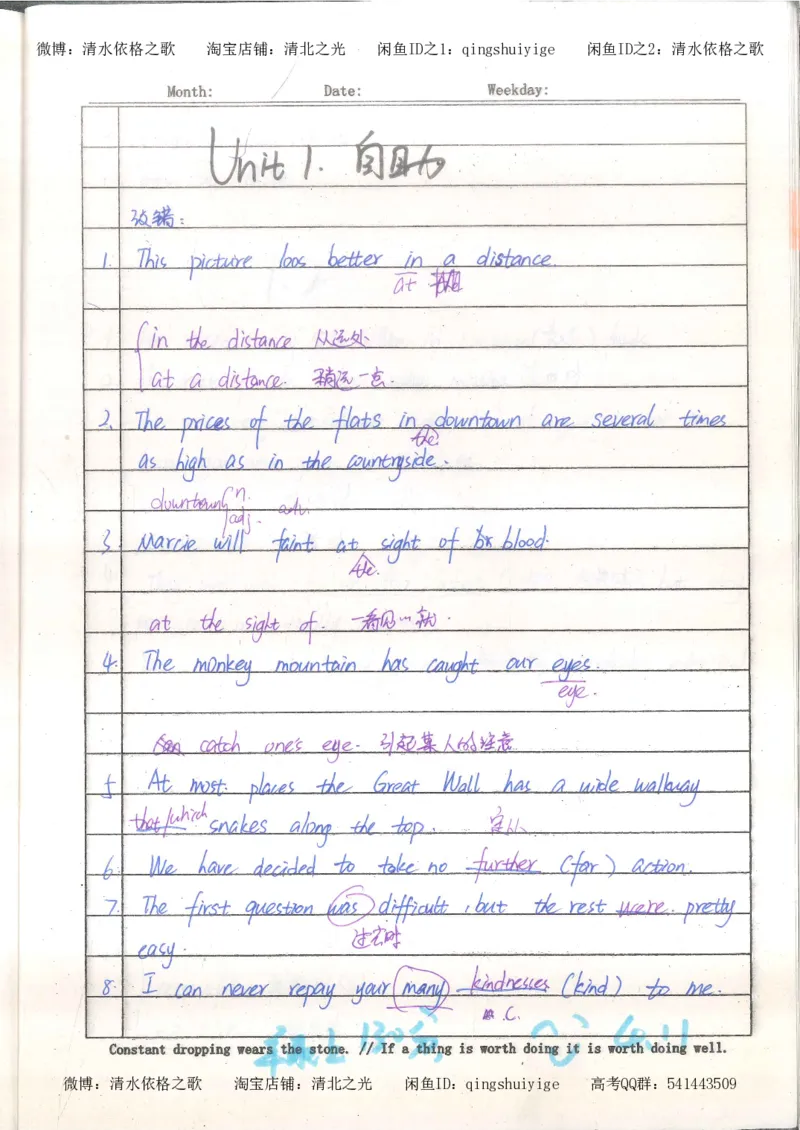 微博：清水依格之歌 淘宝店铺：清北之光 闲鱼ID之1：qingshuiyige 闲鱼ID之2：清水依格之歌
Month: Date: Weekday:
Unit 1. 自助
改错：
1. This picture loos better in a distance.
at
in the distance 从远处
at a distance. 稍远一点.
2. The prices of the flats in downtown are several times
the
as high as in the countryside.
downtown n.
adj. adv.
3. Marcie will faint at sight of blood.
the.
at the sight of. 一看见…就.
4. The monkey mountain has caught our eyes.
eye.
catch one's eye. 引起某人的注意
5 At most places the Great Wall has a wide walkway
that/which snakes along the top. 定从
6. We have decided to take no further (far) action.
7. The first question was difficult, but the rest were pretty
过去时
easy.
8. I can never repay your many kindnesses (kind) to me.
C.
Constant dropping wears the stone. // If a thing is worth doing it is worth doing well.
微博：清水依格之歌 淘宝店铺：清北之光 闲鱼ID：qingshuiyige 高考QQ群：541443509